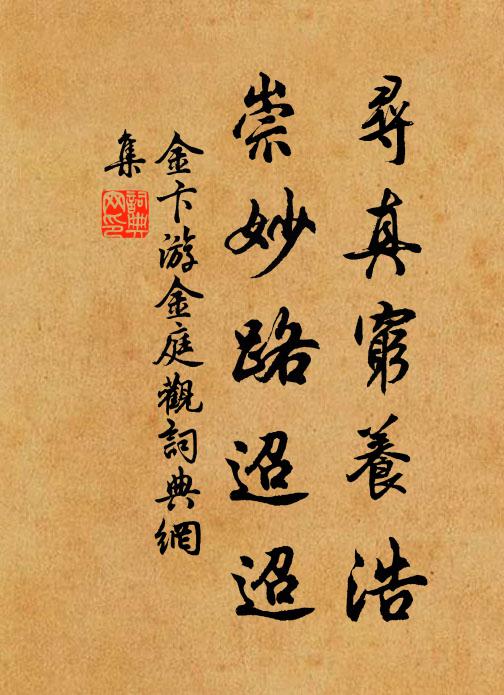 尋真窮養浩
崇妙路迢迢
金卞游金庭觀詞典網
集
詞典
网印